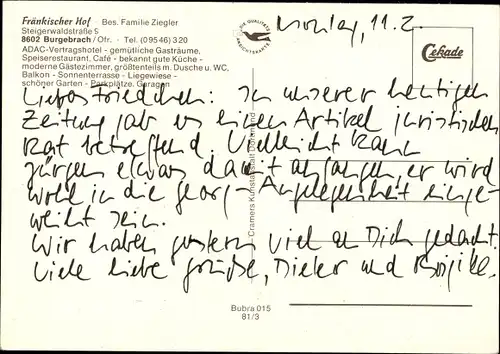 Fränkischer Hof - Bes. Familie Ziegler
Steigerwaldstraße 5
8602 Burgebrach/Ofr. · Tel. (09546) 320
ADAC-Vertragshotel - gemütliche Gasträume,
Speiserestaurant, Café - bekannt gute Küche -
moderne Gästezimmer, größtenteils m. Dusche u. WC,
Balkon - Sonnenterrasse - Liegewiese -
schöner Garten - Parkplätze. Garagen
DIE QUALITÄTS
ANSICHTSKARTE
Montag, 11.2.
Cekade
Liebes Friedchen: In unserer heutigen
Zeitung gab es einen Artikel juristischen
Rat betreffend. Vielleicht kann
Jürgen etwas damit anfangen, er wird
wohl in die Georg-Angelegenheit einge-
weiht sein.
Wir haben gestern viel an Dich gedacht.
Viele liebe Grüße, Dieter und Brigitte.
Cramers Kunstanstalt Dortmund
Bubra 015
81/3